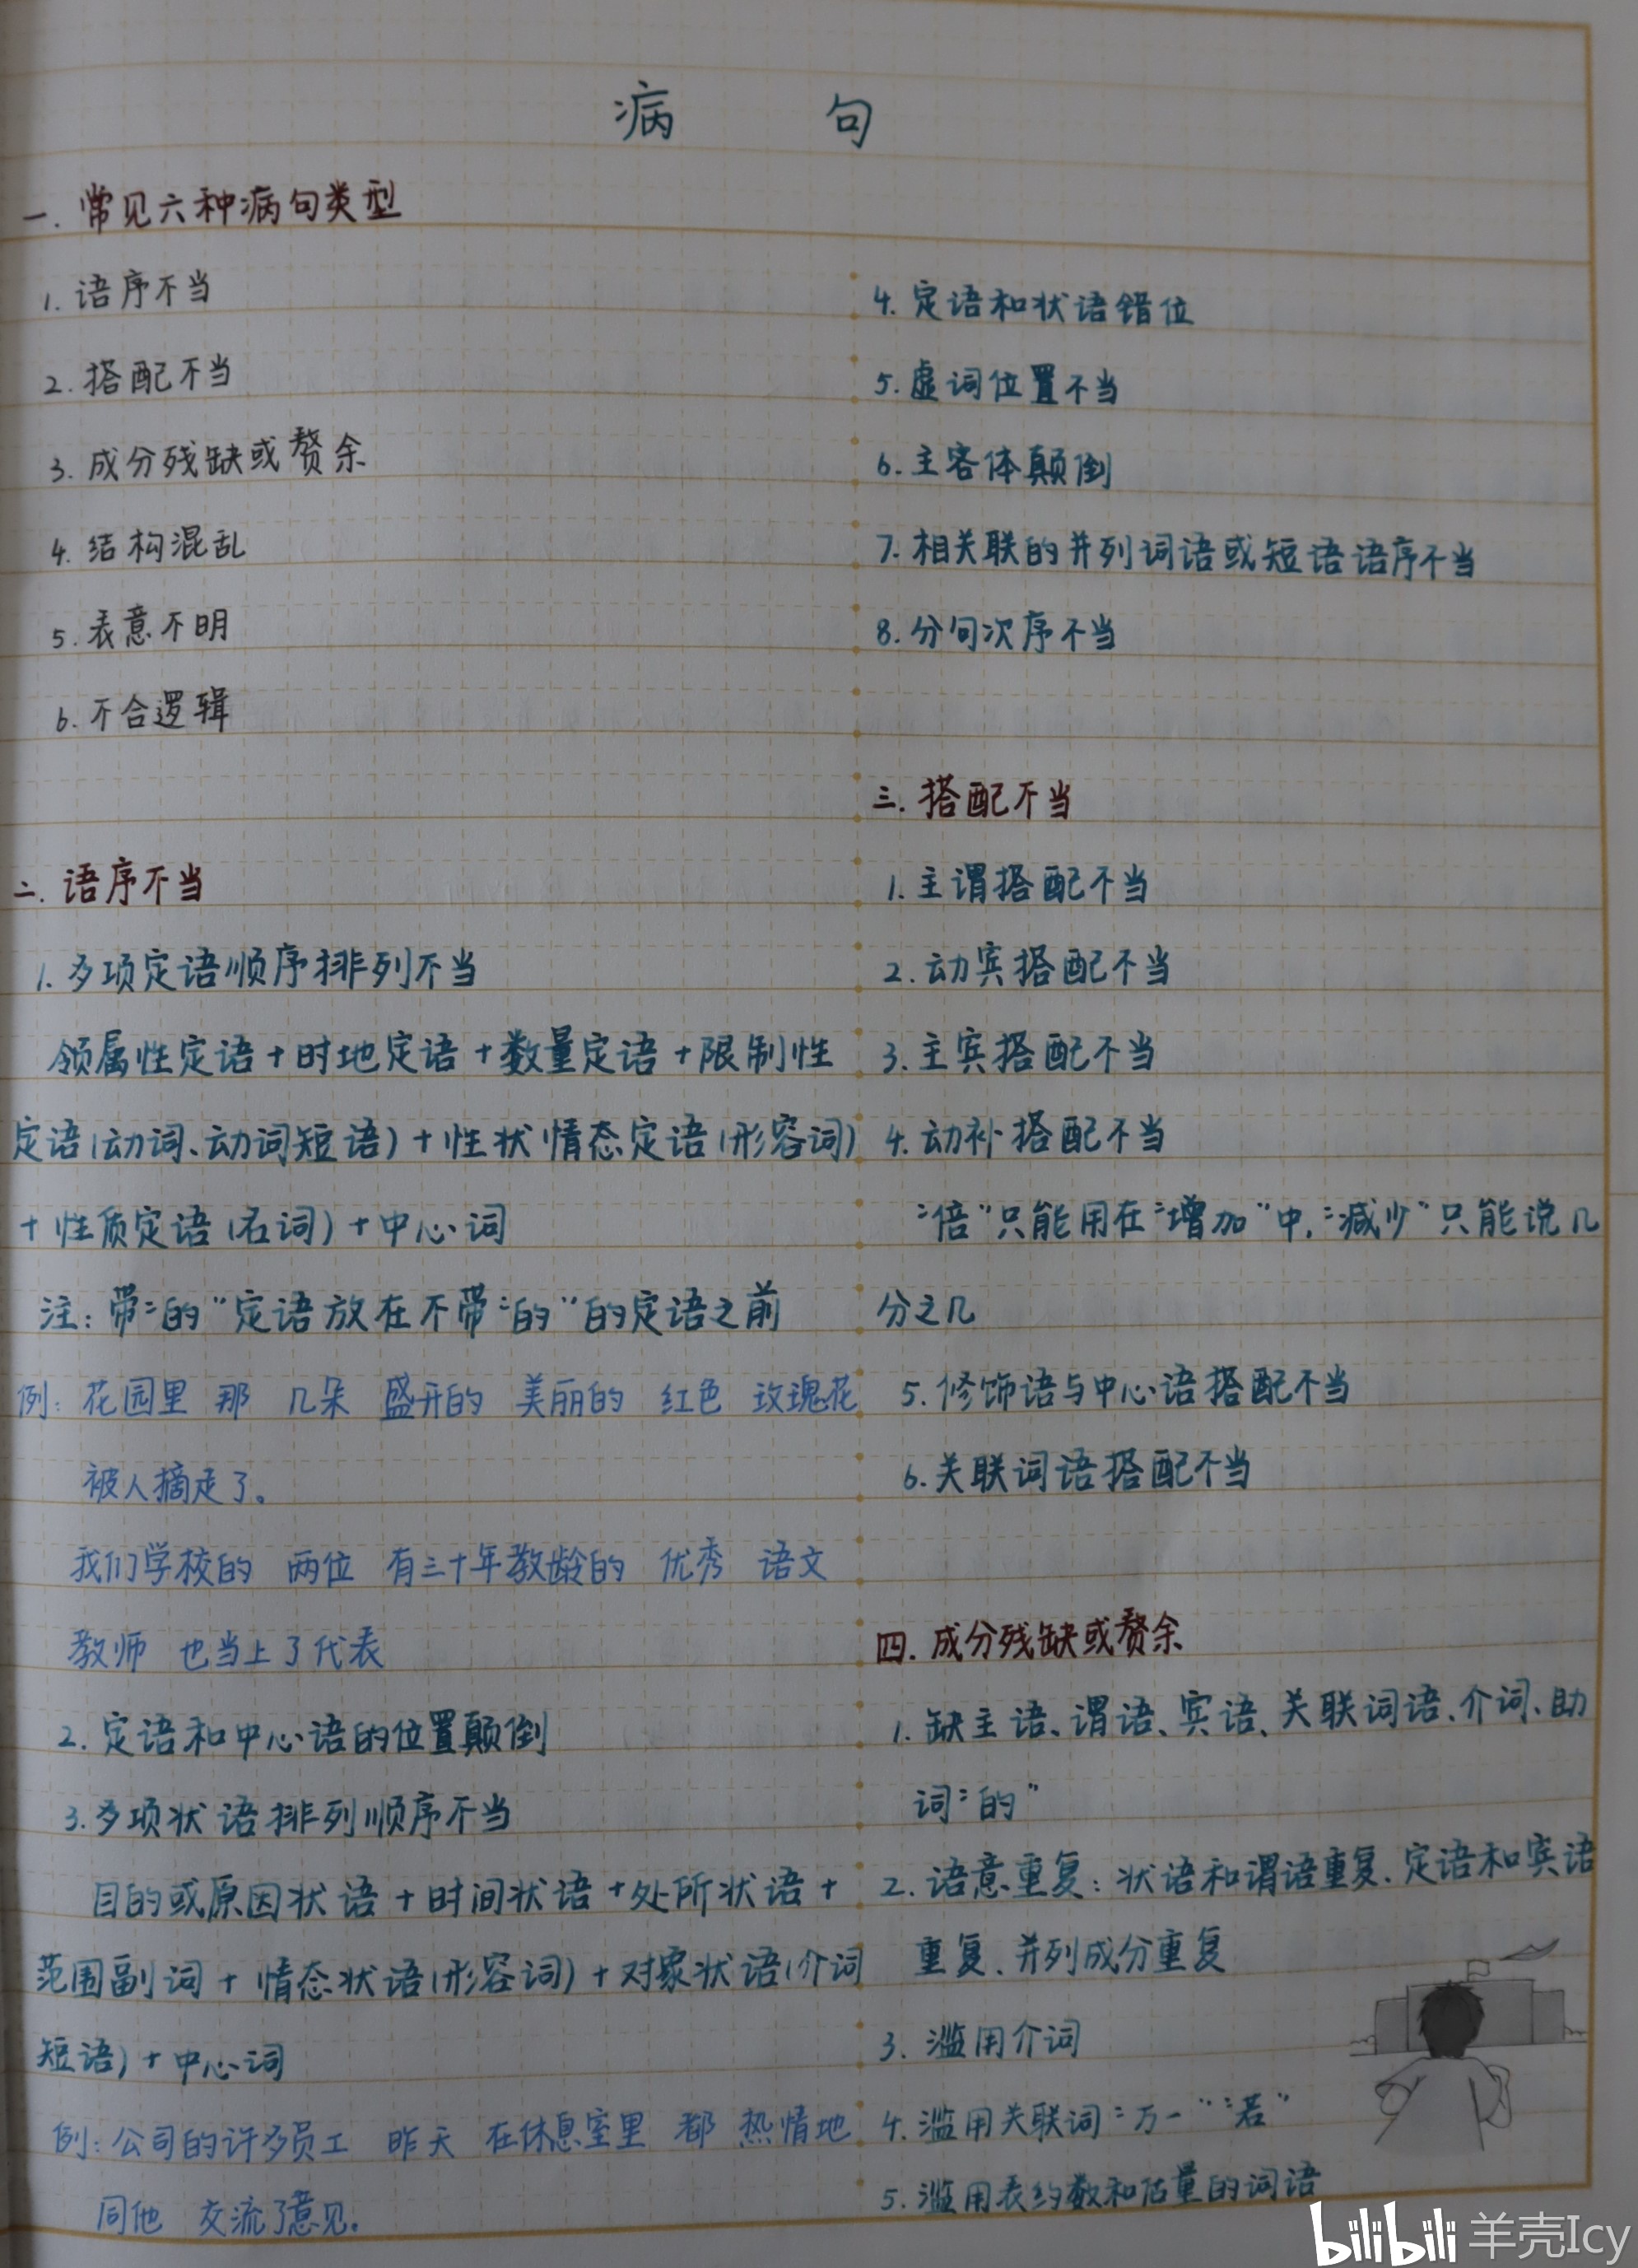 病 句
一. 常见六种病句类型
1. 语序不当
2. 搭配不当
3. 成分残缺或赘余
4. 结构混乱
5. 表意不明
6. 不合逻辑
二. 语序不当
1. 多项定语顺序排列不当
领属性定语+时地定语+数量定语+限制性
定语(动词、动词短语)+性状情态定语(形容词)
+性质定语(名词)+中心词
注: 带“的”定语放在不带“的”的定语之前
例: 花园里 那 几朵 盛开的 美丽的 红色 玫瑰花
被人摘走了。
我们学校的 两位 有三十年教龄的 优秀 语文
教师 也当上了代表
2. 定语和中心语的位置颠倒
3. 多项状语排列顺序不当
目的或原因状语+时间状语+处所状语+
范围副词+情态状语(形容词)+对象状语(介词
短语)+中心词
例: 公司的许多员工 昨天 在休息室里 都 热情地
同他 交流了意见。
4. 定语和状语错位
5. 虚词位置不当
6. 主客体颠倒
7. 相关联的并列词语或短语语序不当
8. 分句次序不当
三. 搭配不当
1. 主谓搭配不当
2. 动宾搭配不当
3. 主宾搭配不当
4. 动补搭配不当
“倍”只能用在“增加”中,“减少”只能说几
分之几
5. 修饰语与中心语搭配不当
6. 关联词语搭配不当
四. 成分残缺或赘余
1. 缺主语、谓语、宾语、关联词语、介词、助
词“的”
2. 语意重复: 状语和谓语重复、定语和宾语
重复、并列成分重复
3. 滥用介词
4. 滥用关联词“万一”“若”
5. 滥用表约数和估量的词语
bilibili 羊壳Icy